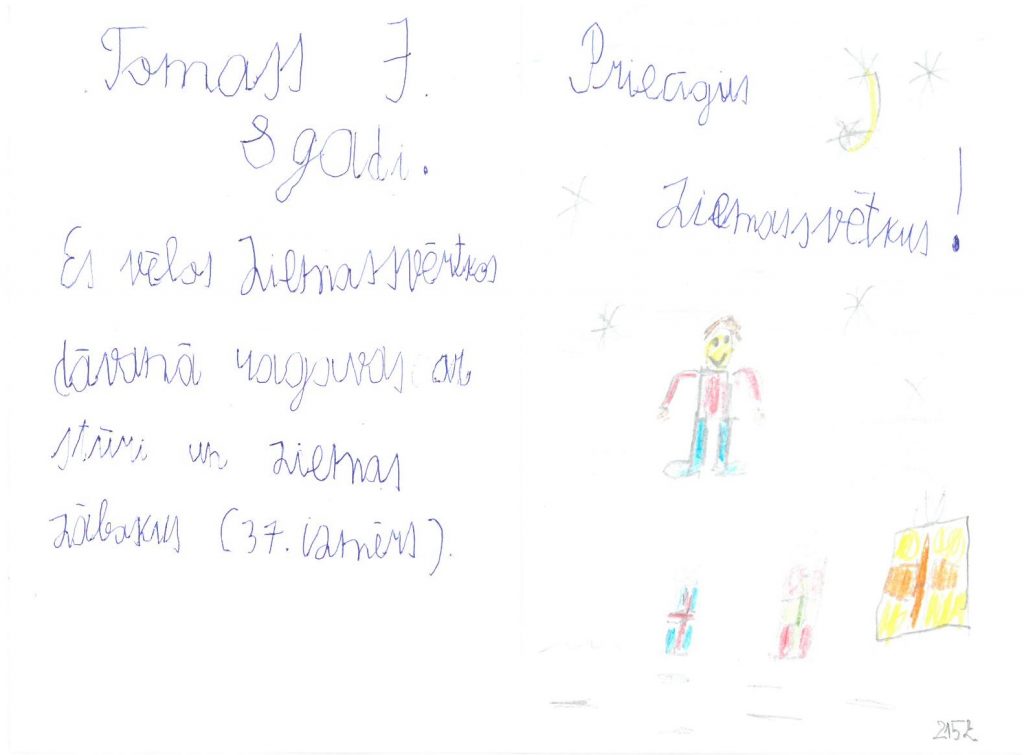 Tomass J.
8 gadi.
Es vēlos Ziemassvērtkos
dāvanā ragavas ar
stūri un ziemas
zābakus (37. izmērs).
Priecīgus
Ziemassvētkus!